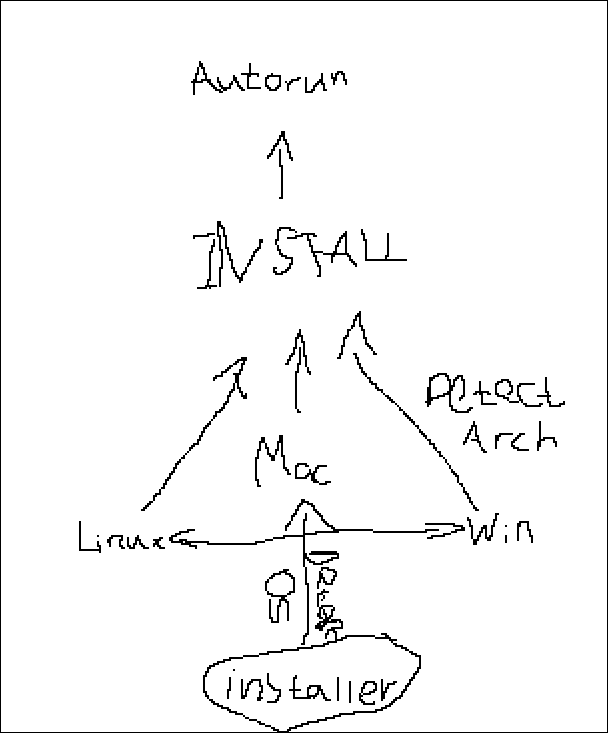 Autorun
INSTALL
Detect
Arch
Mac
Linux
Win
OS
Detect
installer